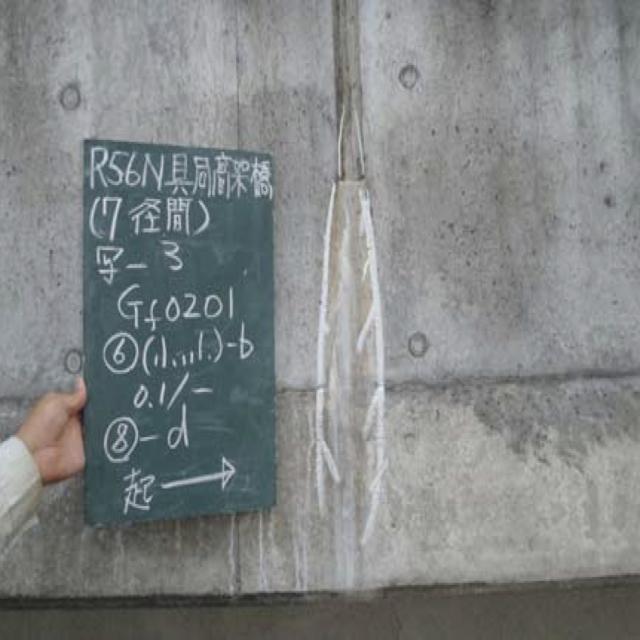 R56N具同高架橋
(7径間)
写-3
Gf0201
⑥(ひ,ﾊ)-b
0.1/-
⑧-d
起→